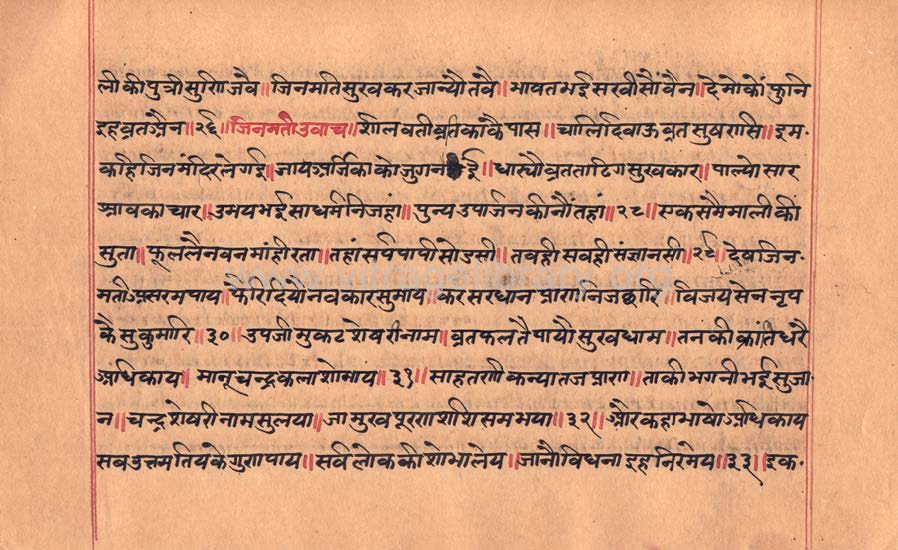 ली की पुत्री सुणि जैव॥ जिनमति सुखकर जान्यौ तवै॥ भाषत भई सखी सौं वैन॥ दे मोकों फुनि
इह व्रत अैन॥२६॥ जिनमती उवाच॥ शीलवती व्रतिका कै पास॥ चालि दिवाऊ व्रत सुषरासि॥ इम
कहै जिनमंदिर ले गई॥ जाय अर्जिका को जुग नई॥ धार्यौ व्रत ता ढिग सुखकार॥ पाल्यो सार
श्रावकाचार॥ उभय भई साधर्मनि जहां॥ पुन्य उपार्जन कीनौं तहां॥२८॥ एक समै माली कीं
सुता॥ फूल लैन वन मांही रता॥ तहां सर्प पापी सो डसी॥ तवही सवही संज्ञा नसी॥२९॥ देष जिन
मती असरम पाय॥ फेरि दियो नवकार सुभाय॥ कर सरधान प्राण निज छारि॥ विजयसेन नृप
कै सुकुमारि॥३०॥ उपजी मुकटशेषरी नाम॥ व्रत फल तै पायौ सुखधाम॥ तन की क्रांति धरै
अधिकाय॥ मानू चन्द्रकला शोभाय॥३१॥ सा हतरणी कन्या तज प्राण॥ ताकी भगनी भई सुजा
न॥ चन्द्रशेषरी नाम सु लया॥ जा मुख पूरण शशि सम भया॥३२॥ और कहा भाषो अधिकाय
सव उत्तम तिय के गुण पाय॥ सर्व लोक की शोभा लेय॥ जानौ विधना इह निरमेय॥३३॥ इक